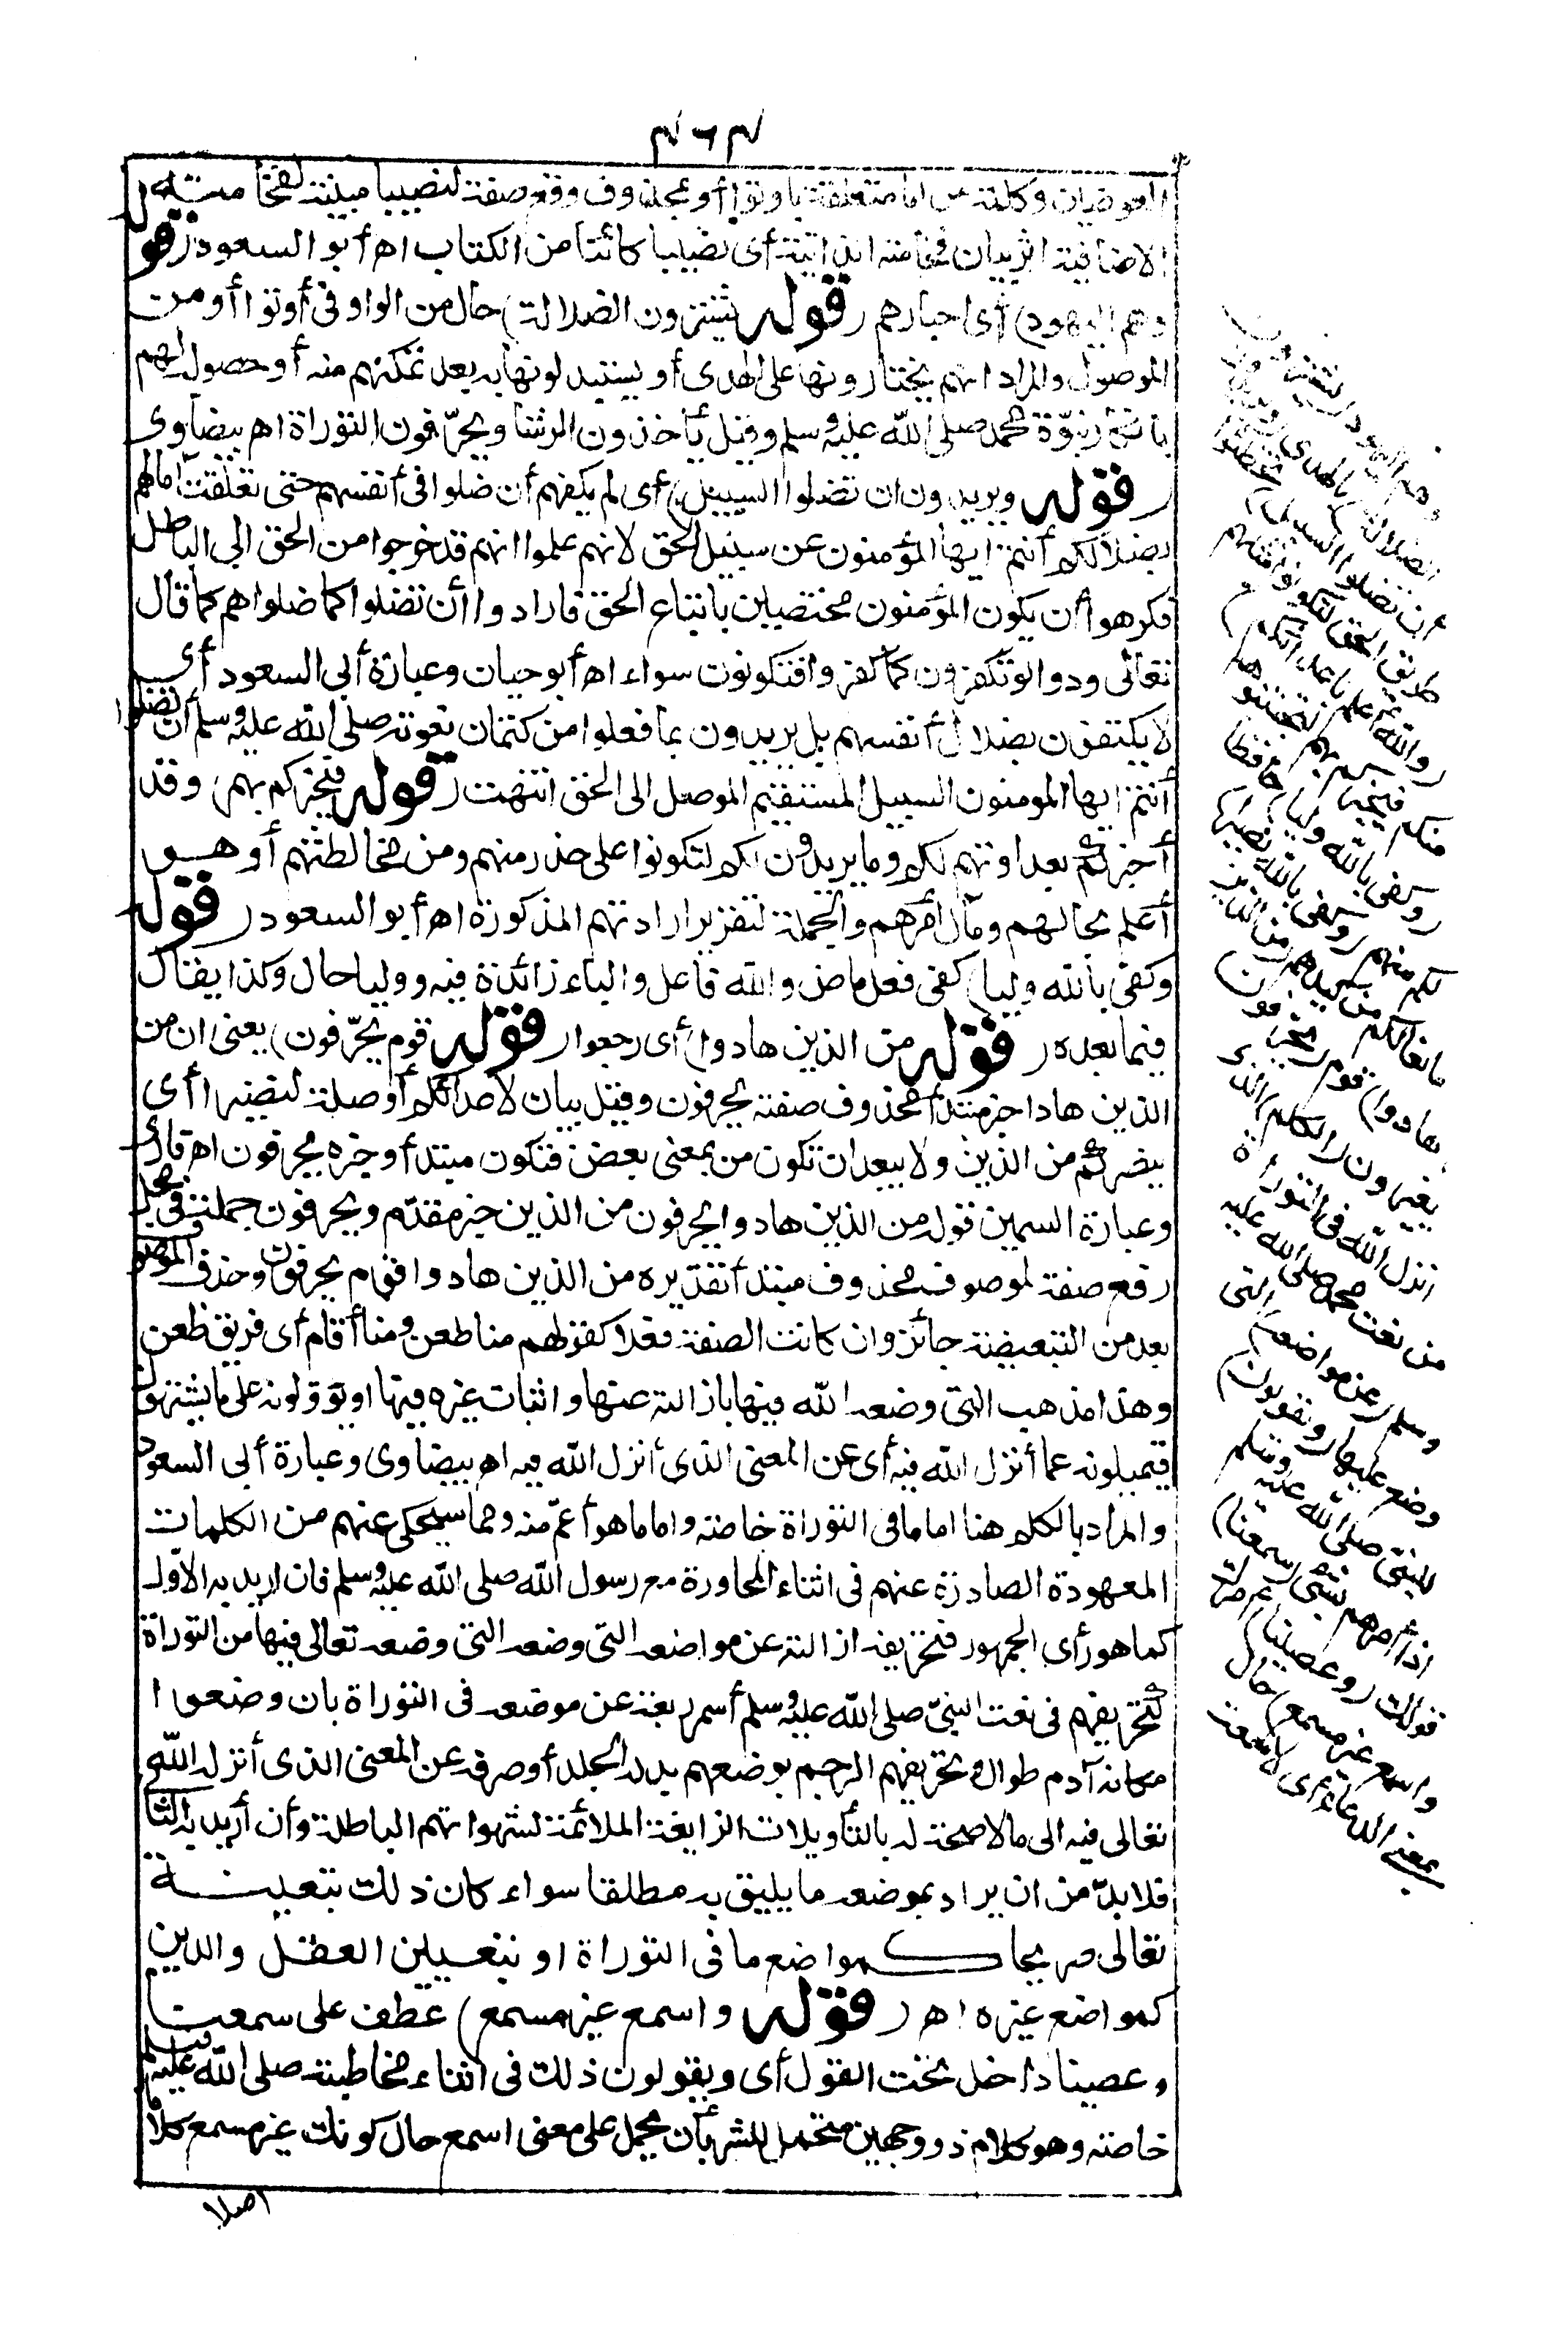 ٣٦٣
العوضيان وكلمة من اما متعلقة باوتوا أو بمحذوف وقع صفة لنصيبا مبينة لفخامته
الاضافية اثر بيان فخامته الذاتية أى نصيبا كائنا من الكتاب اه أبو السعود (قوله
وهم اليهود) أى احبارهم (قوله يشترون الضلالة) حال من الواو فى أوتوا أو من
الموصول والمراد انهم يختارونها على الهدى أو يستبدلونها به بعد تمكنهم منه أو حصوله لهم
بانكار نبوّة محمد صلى الله عليه وسلم وقيل يأخذون الرشا ويحرّفون التوراة اه بيضاوى
(قوله ويريدون ان تضلوا السبيل) أى لم يكفهم أن ضلوا فى أنفسهم حتى تعلقت آمالهم
بضلالكم أنتم ايها المؤمنون عن سبيل الحق لانهم علموا انهم قد خرجوا من الحق الى الباطل
فكرهوا أن يكون المؤمنون مختصين باتباع الحق فارادوا أن تضلوا كما ضلوا هم كما قال
تعالى ودوا لو تكفرون كما كفروا فتكونون سواء اه أبو حيان وعبارة أبى السعود أى
لا يكتفون بضلال أنفسهم بل يريدون بما فعلوا من كتمان نعوته صلى الله عليه وسلم أن تضلوا
أنتم ايها المومنون السبيل المستقيم الموصل الى الحق انتهت (قوله فيخبركم بهم) وقد
أخبركم بعداوتهم لكم وما يريدون بكم لتكونوا على حذر منهم ومن مخالطتهم أو هو
أعلم بحالهم ومآل أمرهم والجملة لتقرير ارادتهم المذكورة اه أبو السعود (قوله
وكفى بالله وليا) كفى فعل ماض والله فاعل والباء زائدة فيه ووليا حال وكذا يقال
فيما بعده (قوله من الذين هادوا) أى رجعوا (قوله قوم يحرّفون) يعنى ان من
الذين هادا خبر مبتدأ محذوف صفته يحرفون وقيل بيان لاعدائكم أو صلة لنصيرا أى
ينصركم من الذين ولا يبعد ان تكون من بمعنى بعض فتكون مبتدأ وخبره يحرفون اه قارى
وعبارة السمين قوله من الذين هادوا يحرفون من الذين خبر مقدّم ويحرفون جملة فى محل
رفع صفة لموصوف محذوف مبتدأ تقديره من الذين هادوا قوم يحرفون وحذف الموصوف
بعد من التبعيضية جائز وان كانت الصفة فعلا كقولهم منا ظعن ومنا أقام أى فريق ظعن
وهذا مذهب التى وضعه الله فيها بازالته عنها واثبات غيره فيها او يؤولونه على ما يشتهون
فيميلونه عما أنزل الله فيه أى عن المعنى الذى أنزل الله فيه اه بيضاوى وعبارة أبى السعود
والمراد بالكلم هنا اما ما فى التوراة خاصة واما ما هو أعمّ منه ومما سيحكى عنهم من الكلمات
المعهودة الصادرة عنهم فى اثناء المحاورة مع رسول الله صلى الله عليه وسلم فان اريد به الاوّل
كما هو رأى الجمهور فتحريفه ازالته عن مواضعه التى وضعه التى وضعه تعالى فيها من التوراة
كتحريفهم فى نعت النبىّ صلى الله عليه وسلم أسمر ربعة عن موضعه فى التوراة بان وضعوا
مكانه آدم طوال وكتحريفهم الرجم بوضعهم بدله الجلد أو صرفه عن المعنى الذى أنزله الله
تعالى فيه الى ما لا صحة له بالتأويلات الزايغة الملائمة لشهواتهم الباطلة وأن أريد به الثانى
فلا بدّ من ان يراد بموضعه ما يليق به مطلقا سواء كان ذلك بتعيينه
تعالى صريحا كمواضع ما فى التوراة او بتعيين العقل والدين
كمواضع غيره اه (قوله واسمع غير مسمع) عطف على سمعنا
وعصينا داخل تحت القول أى ويقولون ذلك فى اثناء مخاطبته صلى الله عليه وسلم
خاصة وهو كلام ذو وجهين محتمل للشر بأن يحمل على معنى اسمع حال كونك غير مسمع كلاما
اصلا
وهم اليهود (يشترون
الضلالة) بالهدى (ويريدون
أن تضلوا السبيل) تخطئوا
طريق الحق لتكونوا مثلهم
(والله أعلم باعدائكم)
منكم فيخبركم بهم لتجتنبوهم
(وكفى بالله وليا) حافظا
لكم منهم (وكفى بالله نصيرا)
مانعا لكم من كيدهم (من الذين
هادوا) قوم (يحرفون)
يغيرون (الكلم) الذى
انزل الله فى التوراة
من نعت محمد صلى الله عليه
وسلم (عن مواضعه) التى
وضع عليها (ويقولون)
للنبى صلى الله عليه وسلم
اذا أمرهم بشئ (سمعنا)
قولك (وعصينا) أمرك
(واسمع غير مسمع) حال
بمعنى الدعاء أى لا سمعت